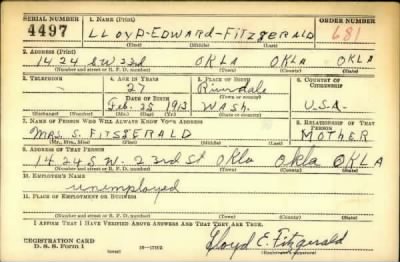 SERIAL NUMBER 1. NAME (Print) ORDER NUMBER
4497 LLOYD-EDWARD-FITZGERALD 681
(First) (Middle) (Last)
2. ADDRESS (Print)
1424 SW 23rd OKLA OKLA OKLA
(Number and street or R. F. D. number) (Town) (County) (State)
3. TELEPHONE 4. AGE IN YEARS 5. PLACE OF BIRTH 6. COUNTRY OF CITIZENSHIP
27
DATE OF BIRTH (Town or county)
Feb. 25 1913 WASH. U.S.A.
(Exchange) (No.) (Mo.) (Day) (Yr.) (State or country)
7. NAME OF PERSON WHO WILL ALWAYS KNOW YOUR ADDRESS 8. RELATIONSHIP OF THAT PERSON
MRS. S. FITSGERALD MOTHER
(Mr., Mrs., Miss) (First) (Middle) (Last)
9. ADDRESS OF THAT PERSON
1424 S W. 23rd St Okla Okla OKLA
(Number and street or R. F. D. number) (Town) (County) (State)
10. EMPLOYER'S NAME
unemployed
11. PLACE OF EMPLOYMENT OR BUSINESS
(Number and street or R. F. D. number) (Town) (County) (State)
I AFFIRM THAT I HAVE VERIFIED ABOVE ANSWERS AND THAT THEY ARE TRUE.
REGISTRATION CARD
D. S. S. FORM 1 (over) Lloyd E. Fitzgerald
(Registrant's signature)